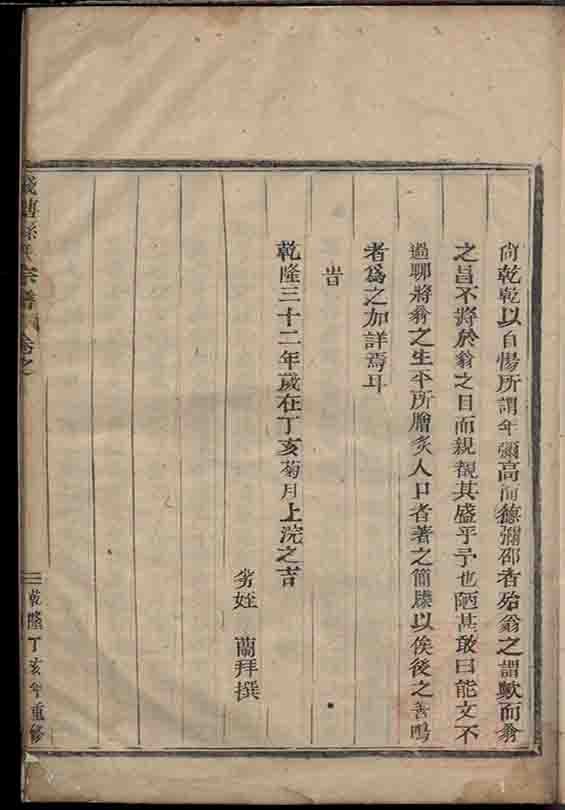 尙乾乾以自惕所謂年彌高而德彌邵者殆翁之謂歟而翁
之昌不將於翁之目而親覩其盛乎予也陋甚敢曰能文不
過聊將翁之生平所膾炙人口者著之簡牘以俟後之善鳴
者爲之加詳焉耳
旹
乾隆三十二年歲在丁亥菊月上浣之吉
劣姪 蘭拜撰
氏宗譜 卷之
乾隆丁亥年重修